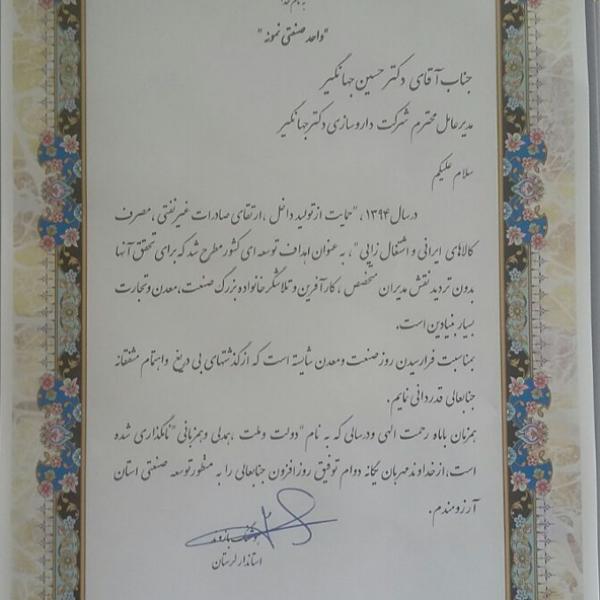 بنام خدا
"واحد صنعتی نمونه"
جناب آقای دکتر حسین جهانگیر
مدیرعامل محترم شرکت داروسازی دکتر جهانگیر
سلام علیکم
در سال ۱۳۹۴، "حمایت از تولید داخل، ارتقای صادرات غیرنفتی، مصرف
کالاهای ایرانی و اشتغال زایی"، به عنوان اهداف توسعه ای کشور مطرح شد که برای تحقق آنها
بدون تردید نقش مدیران متخصص، کارآفرین و تلاشگر خانواده بزرگ صنعت، معدن و تجارت
بسیار بنیادین است.
بمناسبت فرا رسیدن روز صنعت و معدن شایسته است که از گذشتهای بی دریغ واهتمام مشفقانه
جنابعالی قدردانی نمایم.
همزمان باماه رحمت الهی ودرسالی که به نام "دولت و ملت، همدلی وهمزبانی" نامگذاری شده
است، از خداوند مهربان یگانه دوام توفیق روز افزون جنابعالی را به منظور توسعه صنعتی استان
آرزومندم.
هوشنگ بازوند
استاندار لرستان